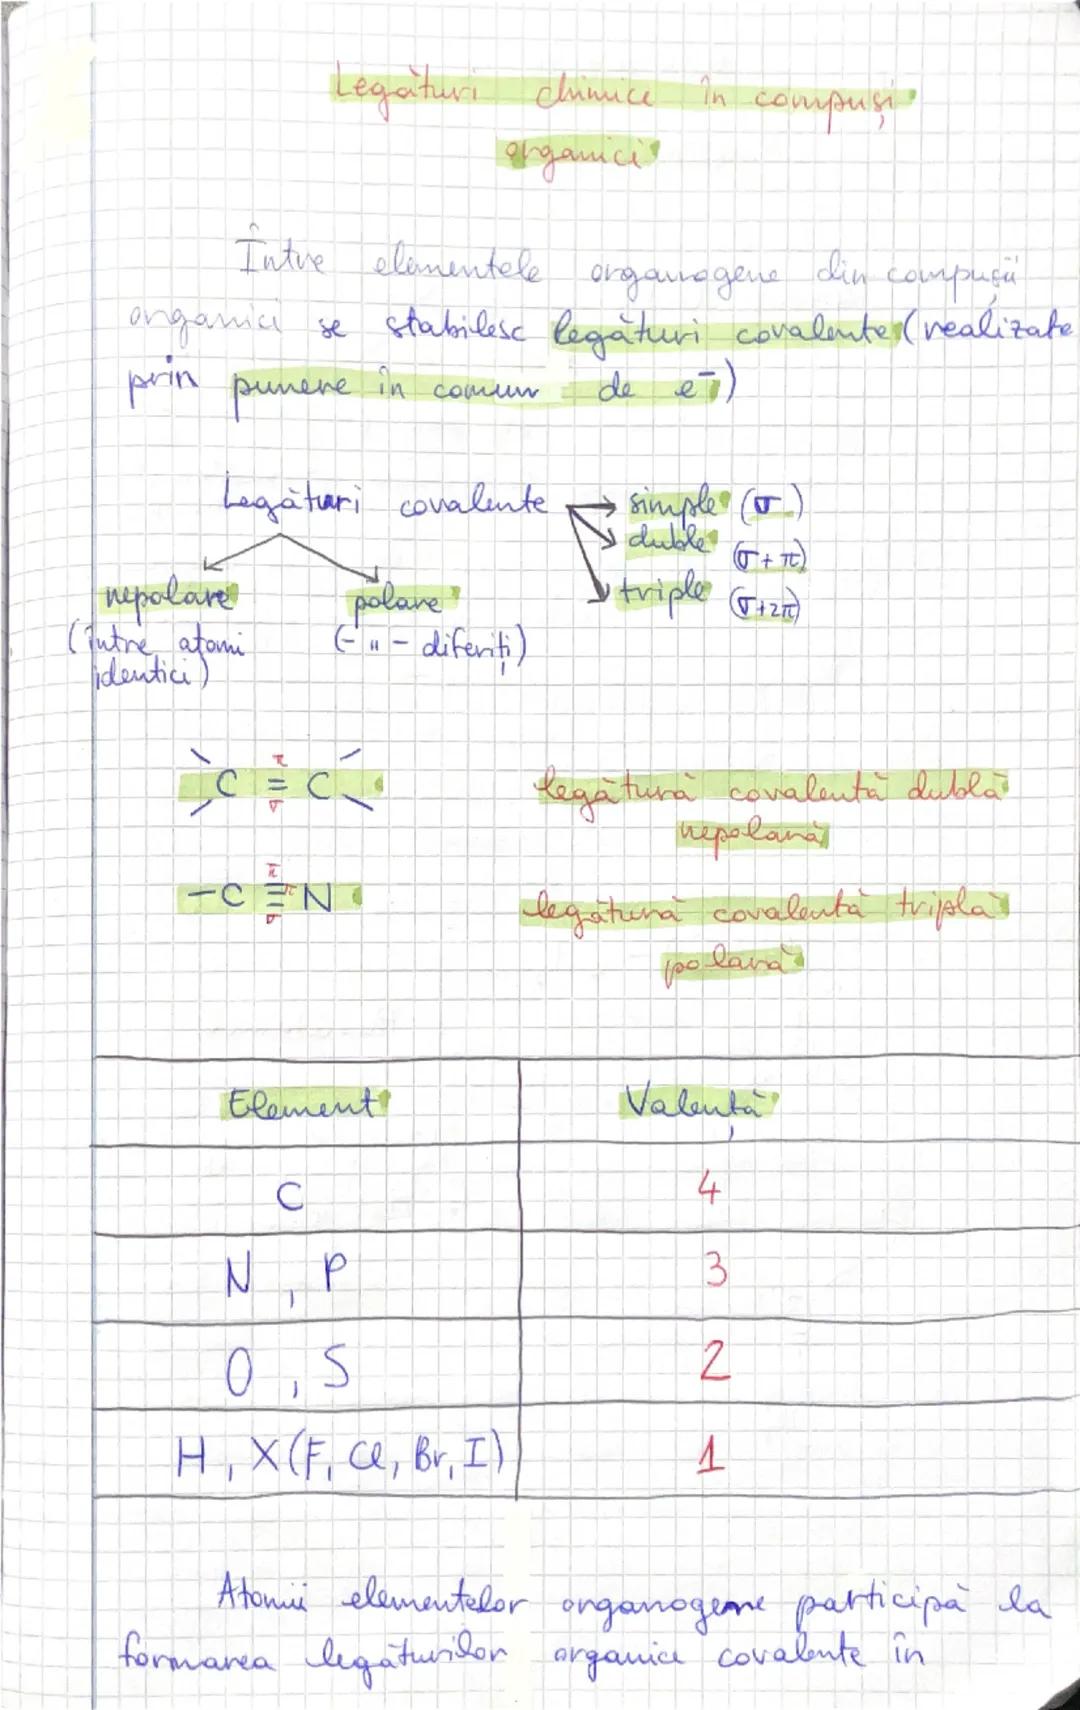 Legături chimice în compuși
organici
Între elementele organogene din compușii
organici se stabilesc legături covalente (realizate
prin punere în comun de e⁻)
Legături covalente → simple (σ)
duble (σ + π)
triple (σ+2π)
nepolare
(între atomi
identici)
polare
(- " - diferiți)
π
C = C
σ
legătură covalentă dublă
nepolară
π
-C ≡ N
π
σ
legătură covalentă triplă
polară
Element Valență
C 4
N, P 3
O, S 2
H, X(F, Cl, Br, I) 1
Atomii elementelor organogene participă la
formarea legăturilor organice covalente în